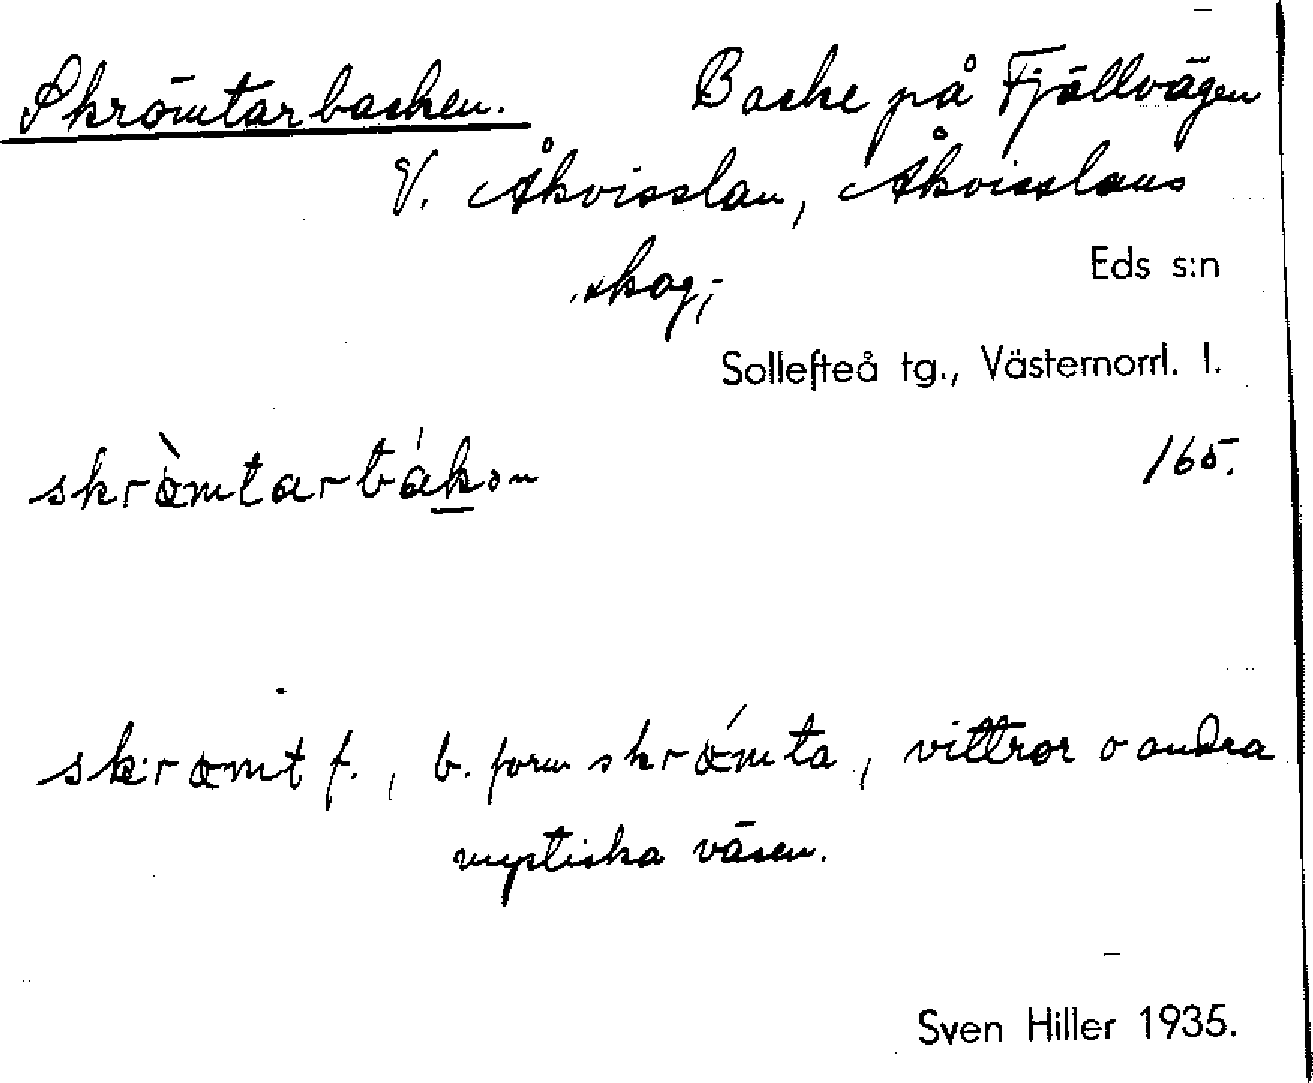 Skrömtarbacken. Backe på Fjällvägen
V. Åkvisslan, Åkvisslans
skog;
Eds s:n
Sollefteå tg., Västernorrl. l.
165.
skrœ̀mtarbákən
skrœmt f., b. form skrœ́mta, vittror o andra
mystiska väsen.
Sven Hiller 1935.